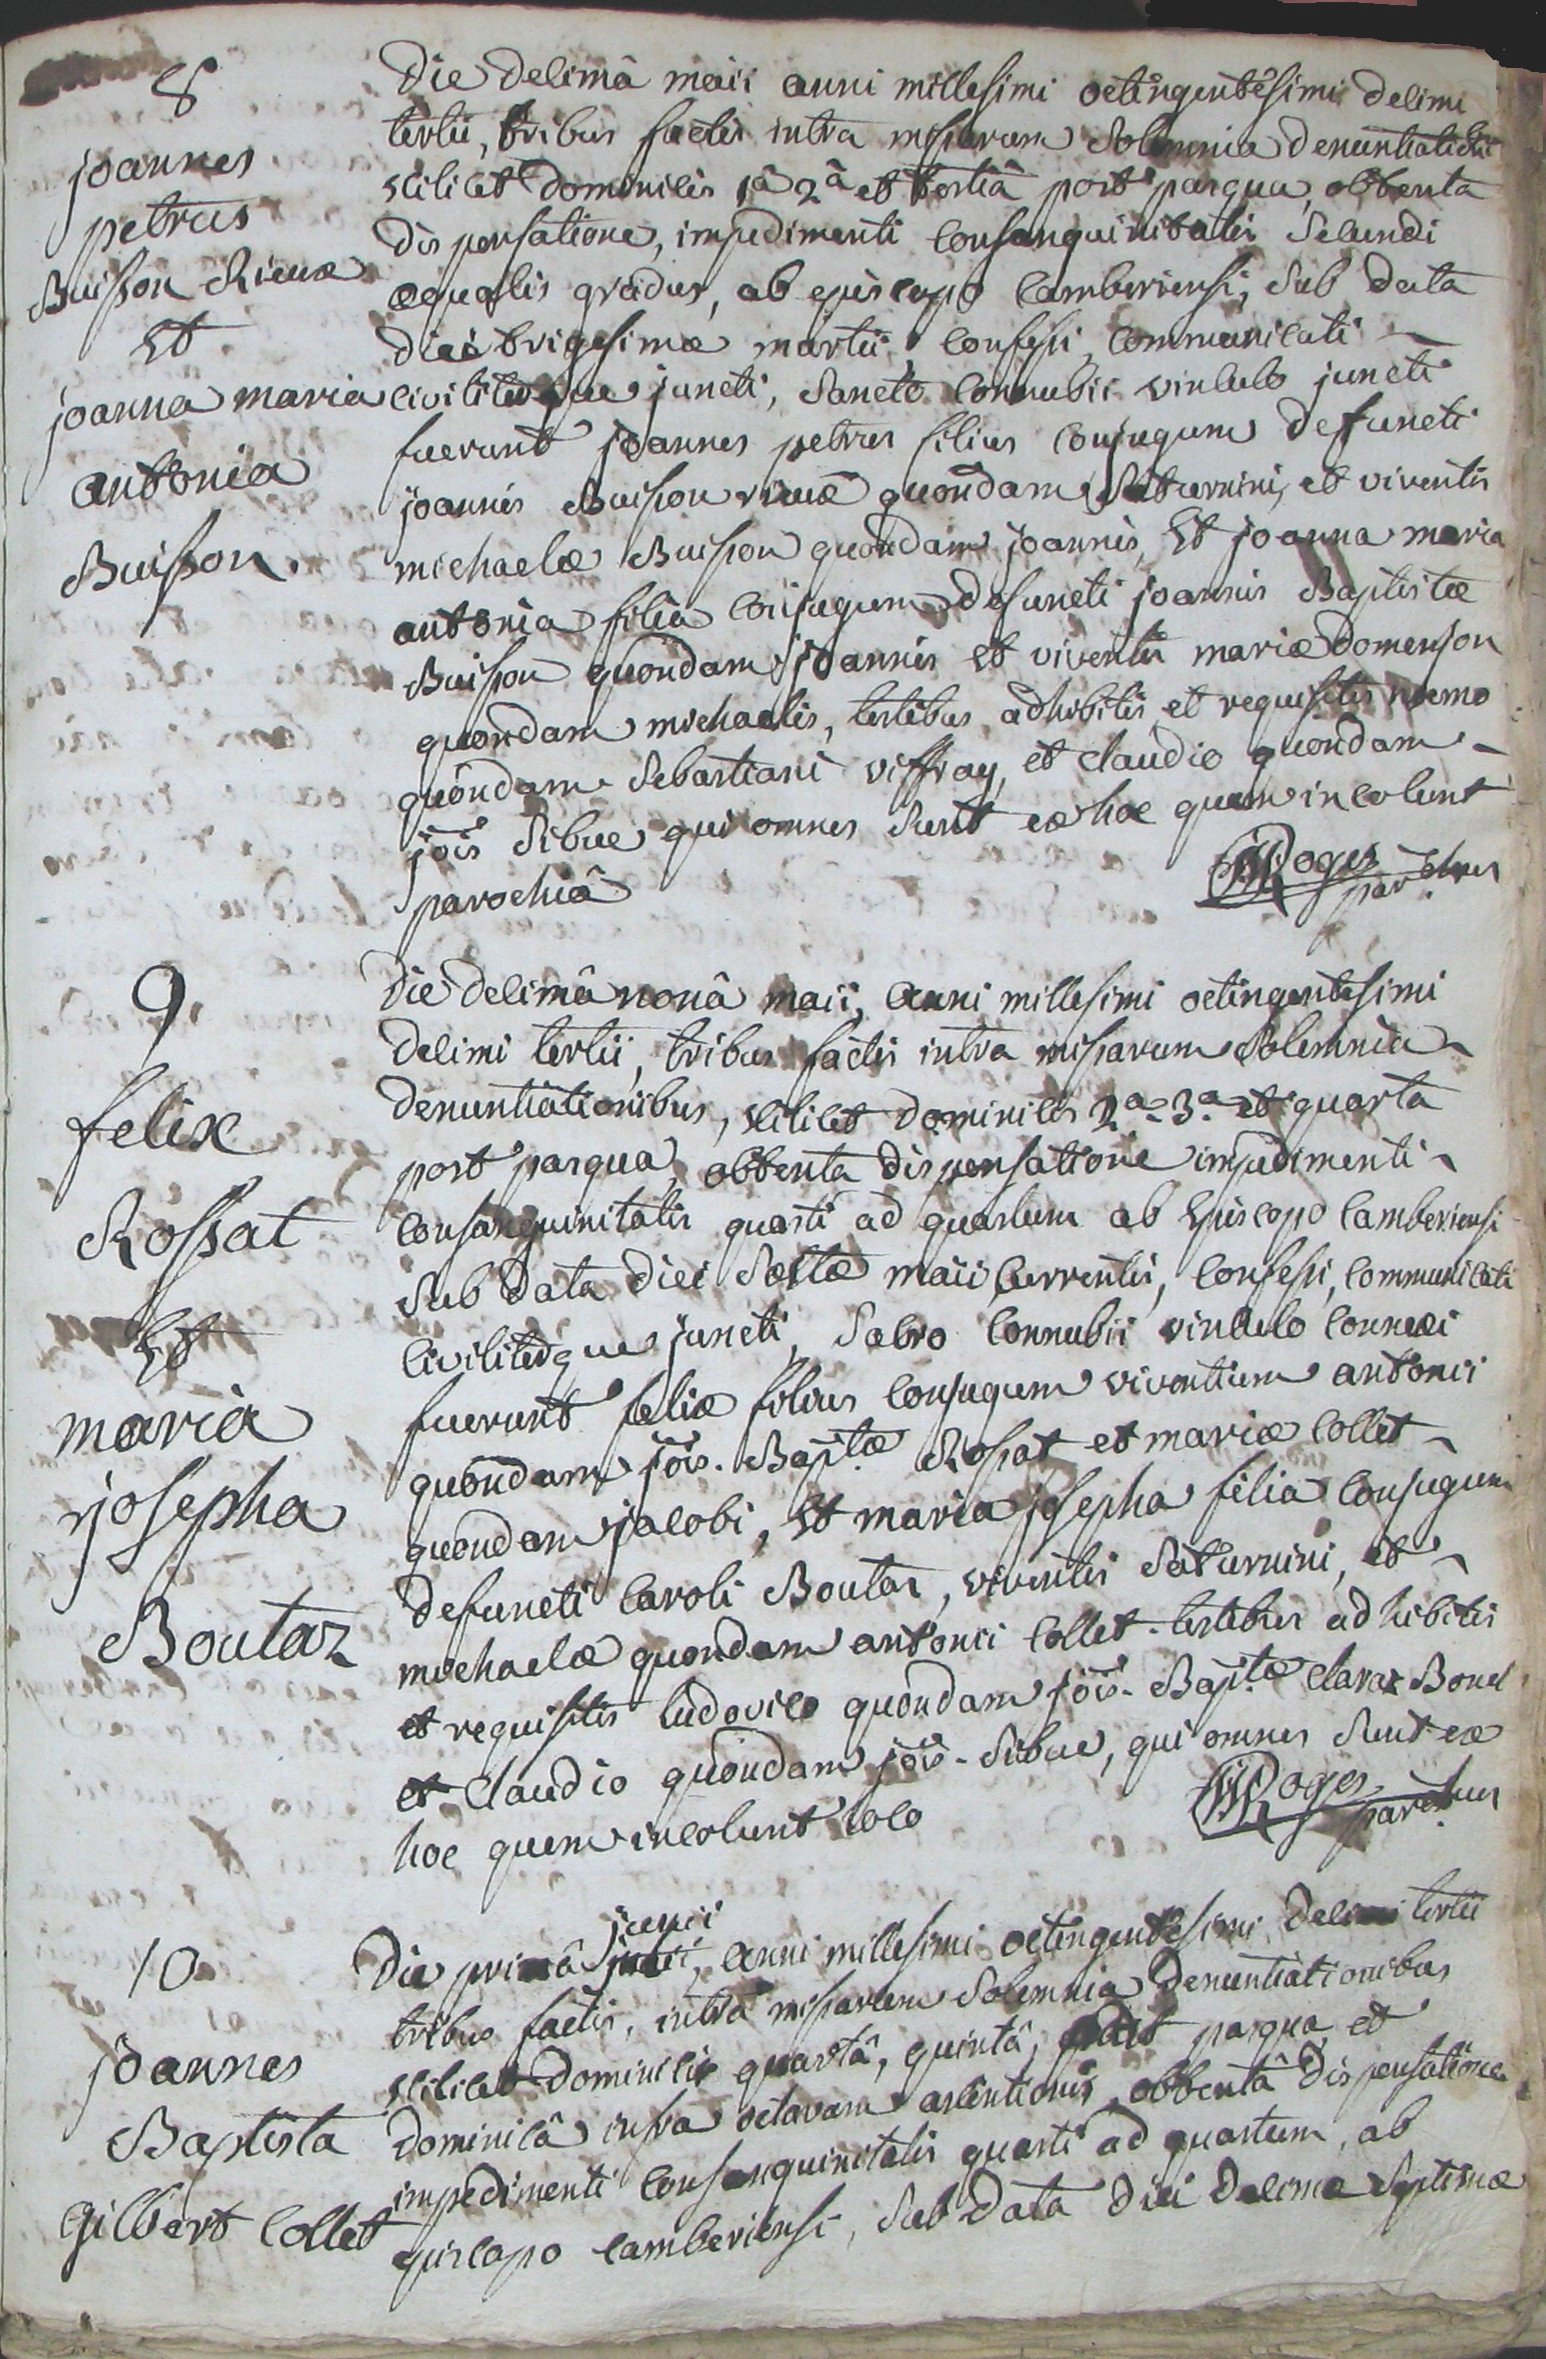 8
joannes
petrus
Buisson Rieux
Et
joanna maria
antonia
Buisson.
Die decimâ maii anni millesimi octingentesimi decimi
tertii, tribus factis intra missarum solemnia denuntiationibus
scilicet dominicis 1â 2â et tertiâ post pasqua, obtenta
dispensatione, impedimenti consanguinitatis secundi
æqualis gradus, ab episcopo camberiensi, sub data
diei trigesimæ martii, confessi, communicati
civiliterque juncti, sancto connubii vinculo juncti
fuerunt joannes petrus filius conjugum defuncti
joannis Buisson rieux quondam Saturnini, et viventis
michaelæ Buisson quondam joannis, Et joanna maria
antonia filia conjugum defuncti joannis Baptistæ
Buisson quondam joannis et viventis mariæ domenson
quondam michaelis, testibus adhibitis et requisitis memo
quondam Sebastiani viffray, et claudio quondam
jois Sibue qui omnes sunt ex hoc quem incolunt
parochiâ
Roges parochus
9
felix
Rossat
Et
maria
josepha
Boutaz
Die decimâ nonâ maii, anni millesimi octingentesimi
decimi tertii, tribus factis intra missarum solemnia
denuntiationibus, scilicet dominicis 2a. 3a. et quarta
post pasqua, obtenta dispensatione impedimenti
consanguinitatis quarti ad quartum ab Episcopo camberiensi
sub data diei sextæ maii currentis, confessi, communicati
civiliterque juncti, sacro connubii vinculo connexi
fuerunt felix filius conjugum viventium antonii
quondam jois. Baptæ Rossat et mariæ collet
quondam jacobi, Et maria josepha filia conjugum
defuncti caroli Boutaz, viventis Saturnini, et
michaelæ quondam antonii collet. testibus adhibitis
et requisitis ludovico quondam jois. Baptæ claraz Bonel
et claudio quondam jois. Sibue, qui omnes sunt ex
hoc quem incolunt loco
Roges parochus
10
joannes
Baptista
Gilbert Collet
junii
Die primâ anni millesimi octingentesimi decimi tertii
tribus factis, intra missarum solemnia denuntiationibus
scilicet dominicis quartâ, quintâ, post pasqua, et
dominicâ infra octavam ascentionis, obtentâ dispensatione
impedimenti consanguinitatis quarti ad quartum, ab
episcopo camberiensi, sub data diei decimæ septimæ